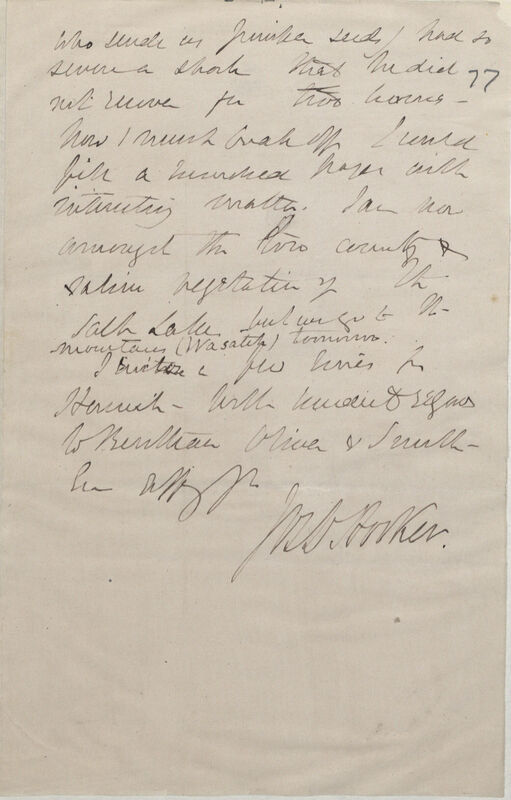 who sends us Juniper seeds) had so
severe a shock that he did 77
not recover for two hours –
Now I must break off I could
fill a hundred pages with
interesting matter. I am now
amongst the country &
saline vegetation of the
Salt Lake but we go to the
mountains (Wasatch) tomorrow.
I write a few lines for
with kindest regards
to Bentham Oliver & Smith –
Ever
Jos D Hooker.